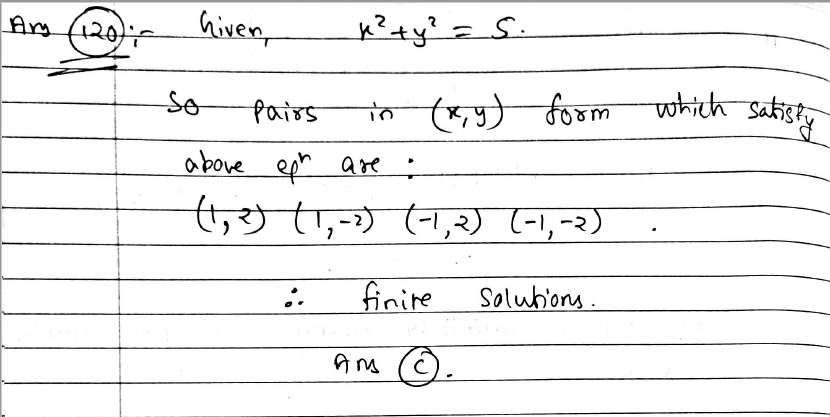 Ans (120):- Given, x² + y² = 5.
So pairs in (x,y) form which satisfy
above eqⁿ are :
(1,2) (1,-2) (-1,2) (-1,-2) .
∴ finite solutions.
Ans (C).